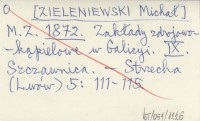 [ZIELENIEWSKI Michał]
M.Z. 1872. Zakłady zdrojowo-
-kąpielowe w Galicyi. IX.
Szczawnica. - Strzecha
(Lwów) 5: 111-115.